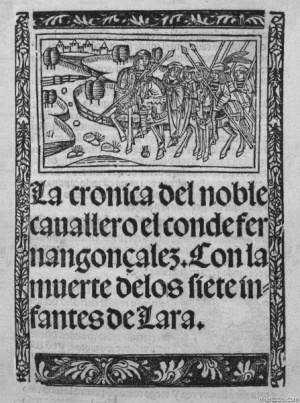 La cronica del noble
cauallero el conde fer
nangonçalez. Con la
muerte delos siete in-
fantes de Lara.